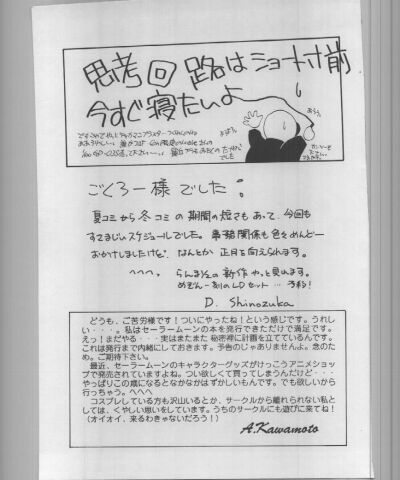 思考回路はショート寸前
今すぐ寝たいよ
ごくろー様でした。
夏コミから冬コミの期間の短さもあって、今回も
すさまじいスケジュールでした。事務関係も色々めんどー
おかけしましたけど、なんとか正月を向えられます。
へへへ。らんま½の新作やっと見れます。
めぞん一刻のLDセット…
D. Shinozuka
どうも、ご苦労様です!ついにやったね!という感じです。うれし
い・・・。私はセーラームーンの本を発行できただけで満足です。
えっ!まだやる・・・実はまたまた秘密裡に計画を立てているんです。
これは発行まで内緒にしておきます。予告のじゃありませんよ。念のた
め。ご期待下さい。
最近、セーラームーンのキャラクターグッズがけっこうアニメショッ
プで発売されていますよね。つい欲しくて買ってしまうんだけど・・・
やっぱりこの歳になるとなかなかはずかしいもんです。でも欲しいから
行っちゃう。へへへ
コスプレしている方も沢山いるとか、サークルから離れられない私と
しては、くやしい思いをしています。うちのサークルにも遊びに来てね!
(オイオイ、来るわきゃないだろう!)
A.Kawamoto